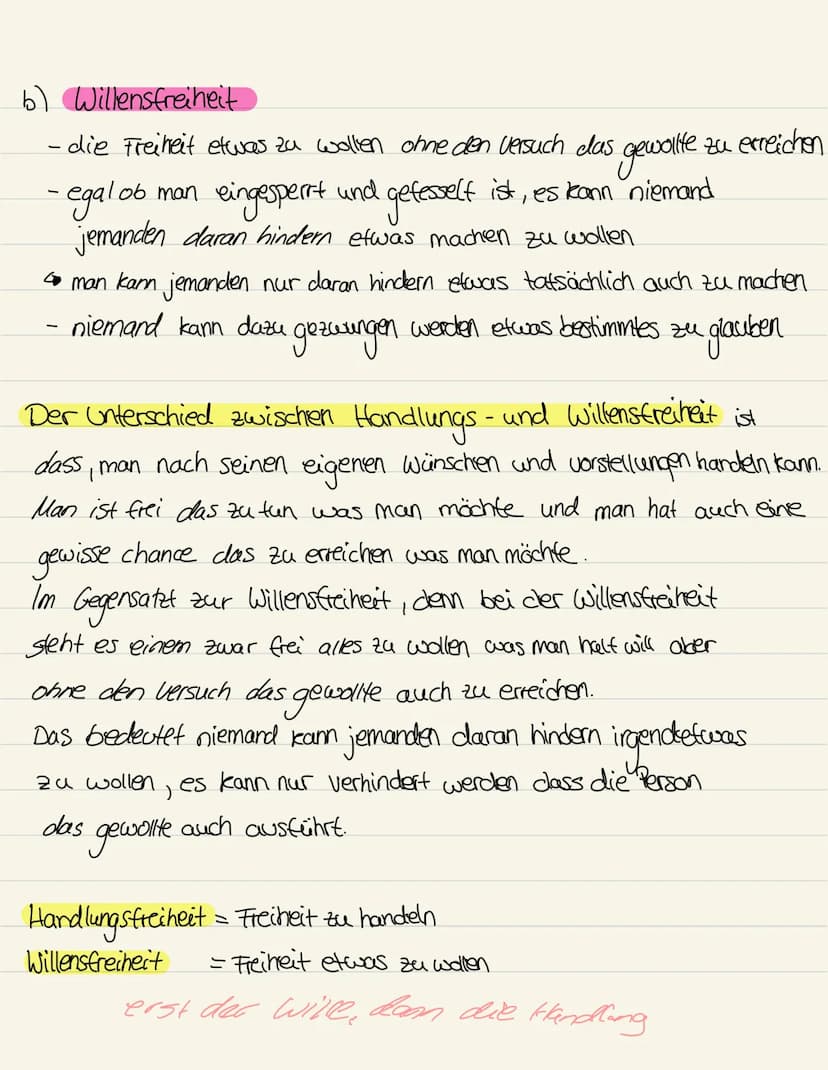 b) Willensfreiheit
- die Freiheit etwas zu wollen ohne den Versuch das gewollte zu erreichen
- egal ob man eingesperrt und gefesselt ist, es kann niemand
jemanden daran hindern etwas machen zu wollen
↳ man kann jemanden nur daran hindern etwas tatsächlich auch zu machen
- niemand kann dazu gezwungen werden etwas bestimmtes zu glauben
Der Unterschied zwischen Handlungs- und Willensfreiheit ist
dass, man nach seinen eigenen Wünschen und vorstellungen handeln kann.
Man ist frei das zu tun was man möchte und man hat auch eine
gewisse chance das zu erreichen was man möchte.
Im Gegensatzt zur Willensfreiheit, denn bei der Willensfreiheit
steht es einem zwar frei alles zu wollen was man halt will aber
ohne den Versuch das gewollte auch zu erreichen.
Das bedeutet niemand kann jemanden daran hindern irgendetwas
zu wollen, es kann nur verhindert werden dass die Person
das gewollte auch ausführt.
Handlungsfreiheit = Freiheit zu handeln
Willensfreiheit = Freiheit etwas zu wollen
erst der Wille, dann die Handlung